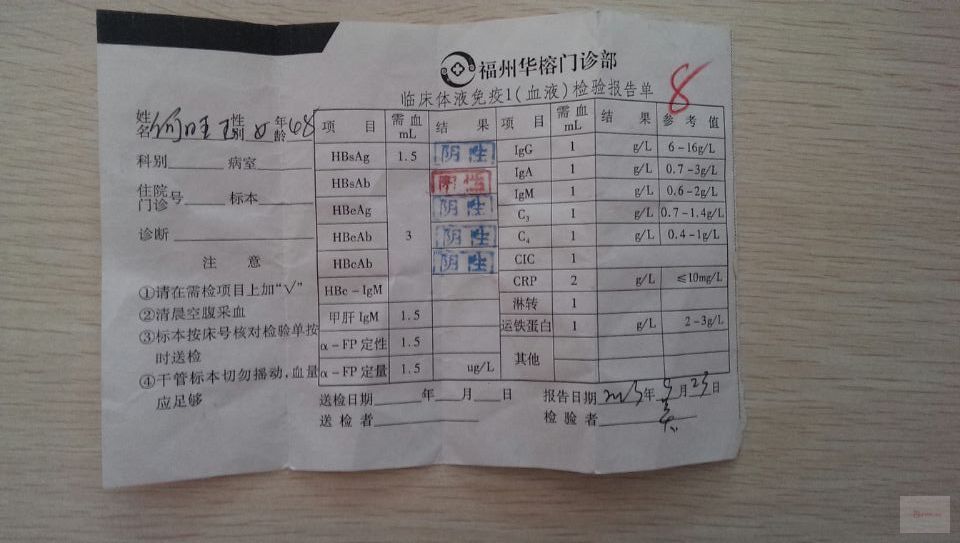 福州华榕门诊部
临床体液免疫1(血液)检验报告单
8
姓名 性别 女 年龄 68
科别 病室
住院门诊号 标本
诊断
注 意
①请在需检项目上加"√"
②清晨空腹采血
③标本按床号核对检验单按
时送检
④干管标本切勿摇动,血量
应足够
项 目 需血mL 结 果 项 目 需血mL 结 果 参考值
HBsAg 1.5 阴性 IgG 1 g/L 6-16g/L
HBsAb 阳性 IgA 1 g/L 0.7-3g/L
HBeAg 阴性 IgM 1 g/L 0.6-2g/L
HBeAb 3 阴性 C3 1 g/L 0.7-1.4g/L
HBcAb 阴性 C4 1 g/L 0.4-1g/L
HBc-IgM CIC 1
甲肝IgM 1.5 CRP 2 g/L ≤10mg/L
α-FP定性 1.5 淋转 1
α-FP定量 1.5 ug/L 运铁蛋白 1 g/L 2-3g/L
其他
送检日期 年 月 日 报告日期 年 月 23日
送检者 检验者